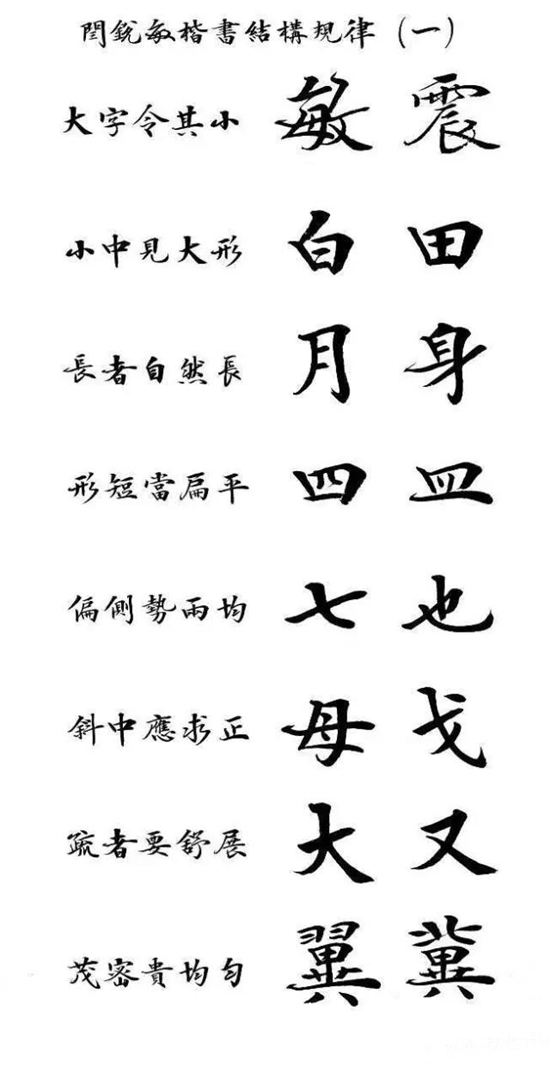 閆銳敏楷書結構規律（一）
大字令其小 敏 震
小中見大形 白 田
長者自然長 月 身
形短當扁平 四 皿
偏側勢兩均 七 也
斜中應求正 母 戈
疏者要舒展 大 又
茂密貴均勻 翼 冀